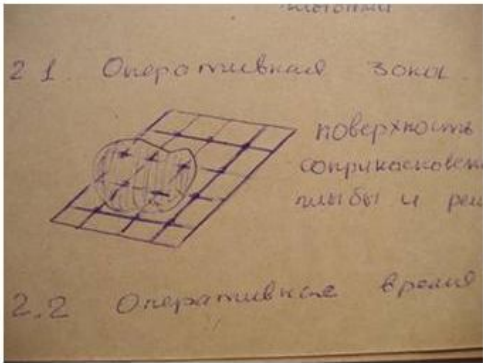 2.1. Оперативная зона.
поверхность
соприкосновен
глыбы и реш
2.2 Оперативное время